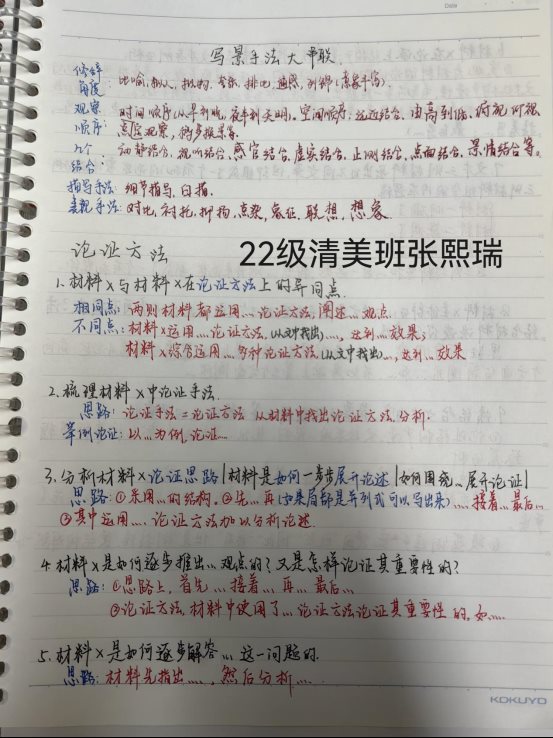 Date
写景手法大串联
修辞
角度: 比喻,拟人,拟物,夸张,排比,通感,列锦(意象丰富)
观察 时间顺序(从早到晚,夜半到天明)。空间顺序,远近结合,由高到低,俯视仰视
顺序: 定点观察,移步换景等。
几个 动静结合,视听结合,感官结合,虚实结合,正侧结合,点面结合,景情结合等。
结合:
描写手法: 细节描写,白描。
表现手法: 对比,衬托,抑扬,点染,象征,联想,想象
论证方法
22级清美班张熙瑞
1.材料X与材料X在论证方法上的异同点.
相同点: 两则材料都运用...论证方法,阐述...观点.
不同点: 材料X运用...论证方法,(从文中找出)...,达到...效果;
材料X综合运用...多种论证方法,(从文中找出)...,达到...效果
2.梳理材料X中论证手法.
思路: 论证手法=论证方法 从材料中找出论证方法,分析.
举例论证: 以...为例,论证...
3.分析材料X论证思路|材料是如何一步步展开论述|如何围绕...展开论证|
思路: ①采用...的结构. ②先...再(如果局部是并列式可以写出来)....接着...最后...
③其中运用....论证方法加以分析论述.
4.材料X是如何逐步推出...观点的?又是怎样论证其重要性的?
思路: ①思路上,首先...接着...再...最后...
②论证方法,材料中使用了...论证方法论证其重要性的,如....
5.材料X是如何逐步解答...这一问题的.
思路: 材料先指出....,然后分析....
KOKUYO